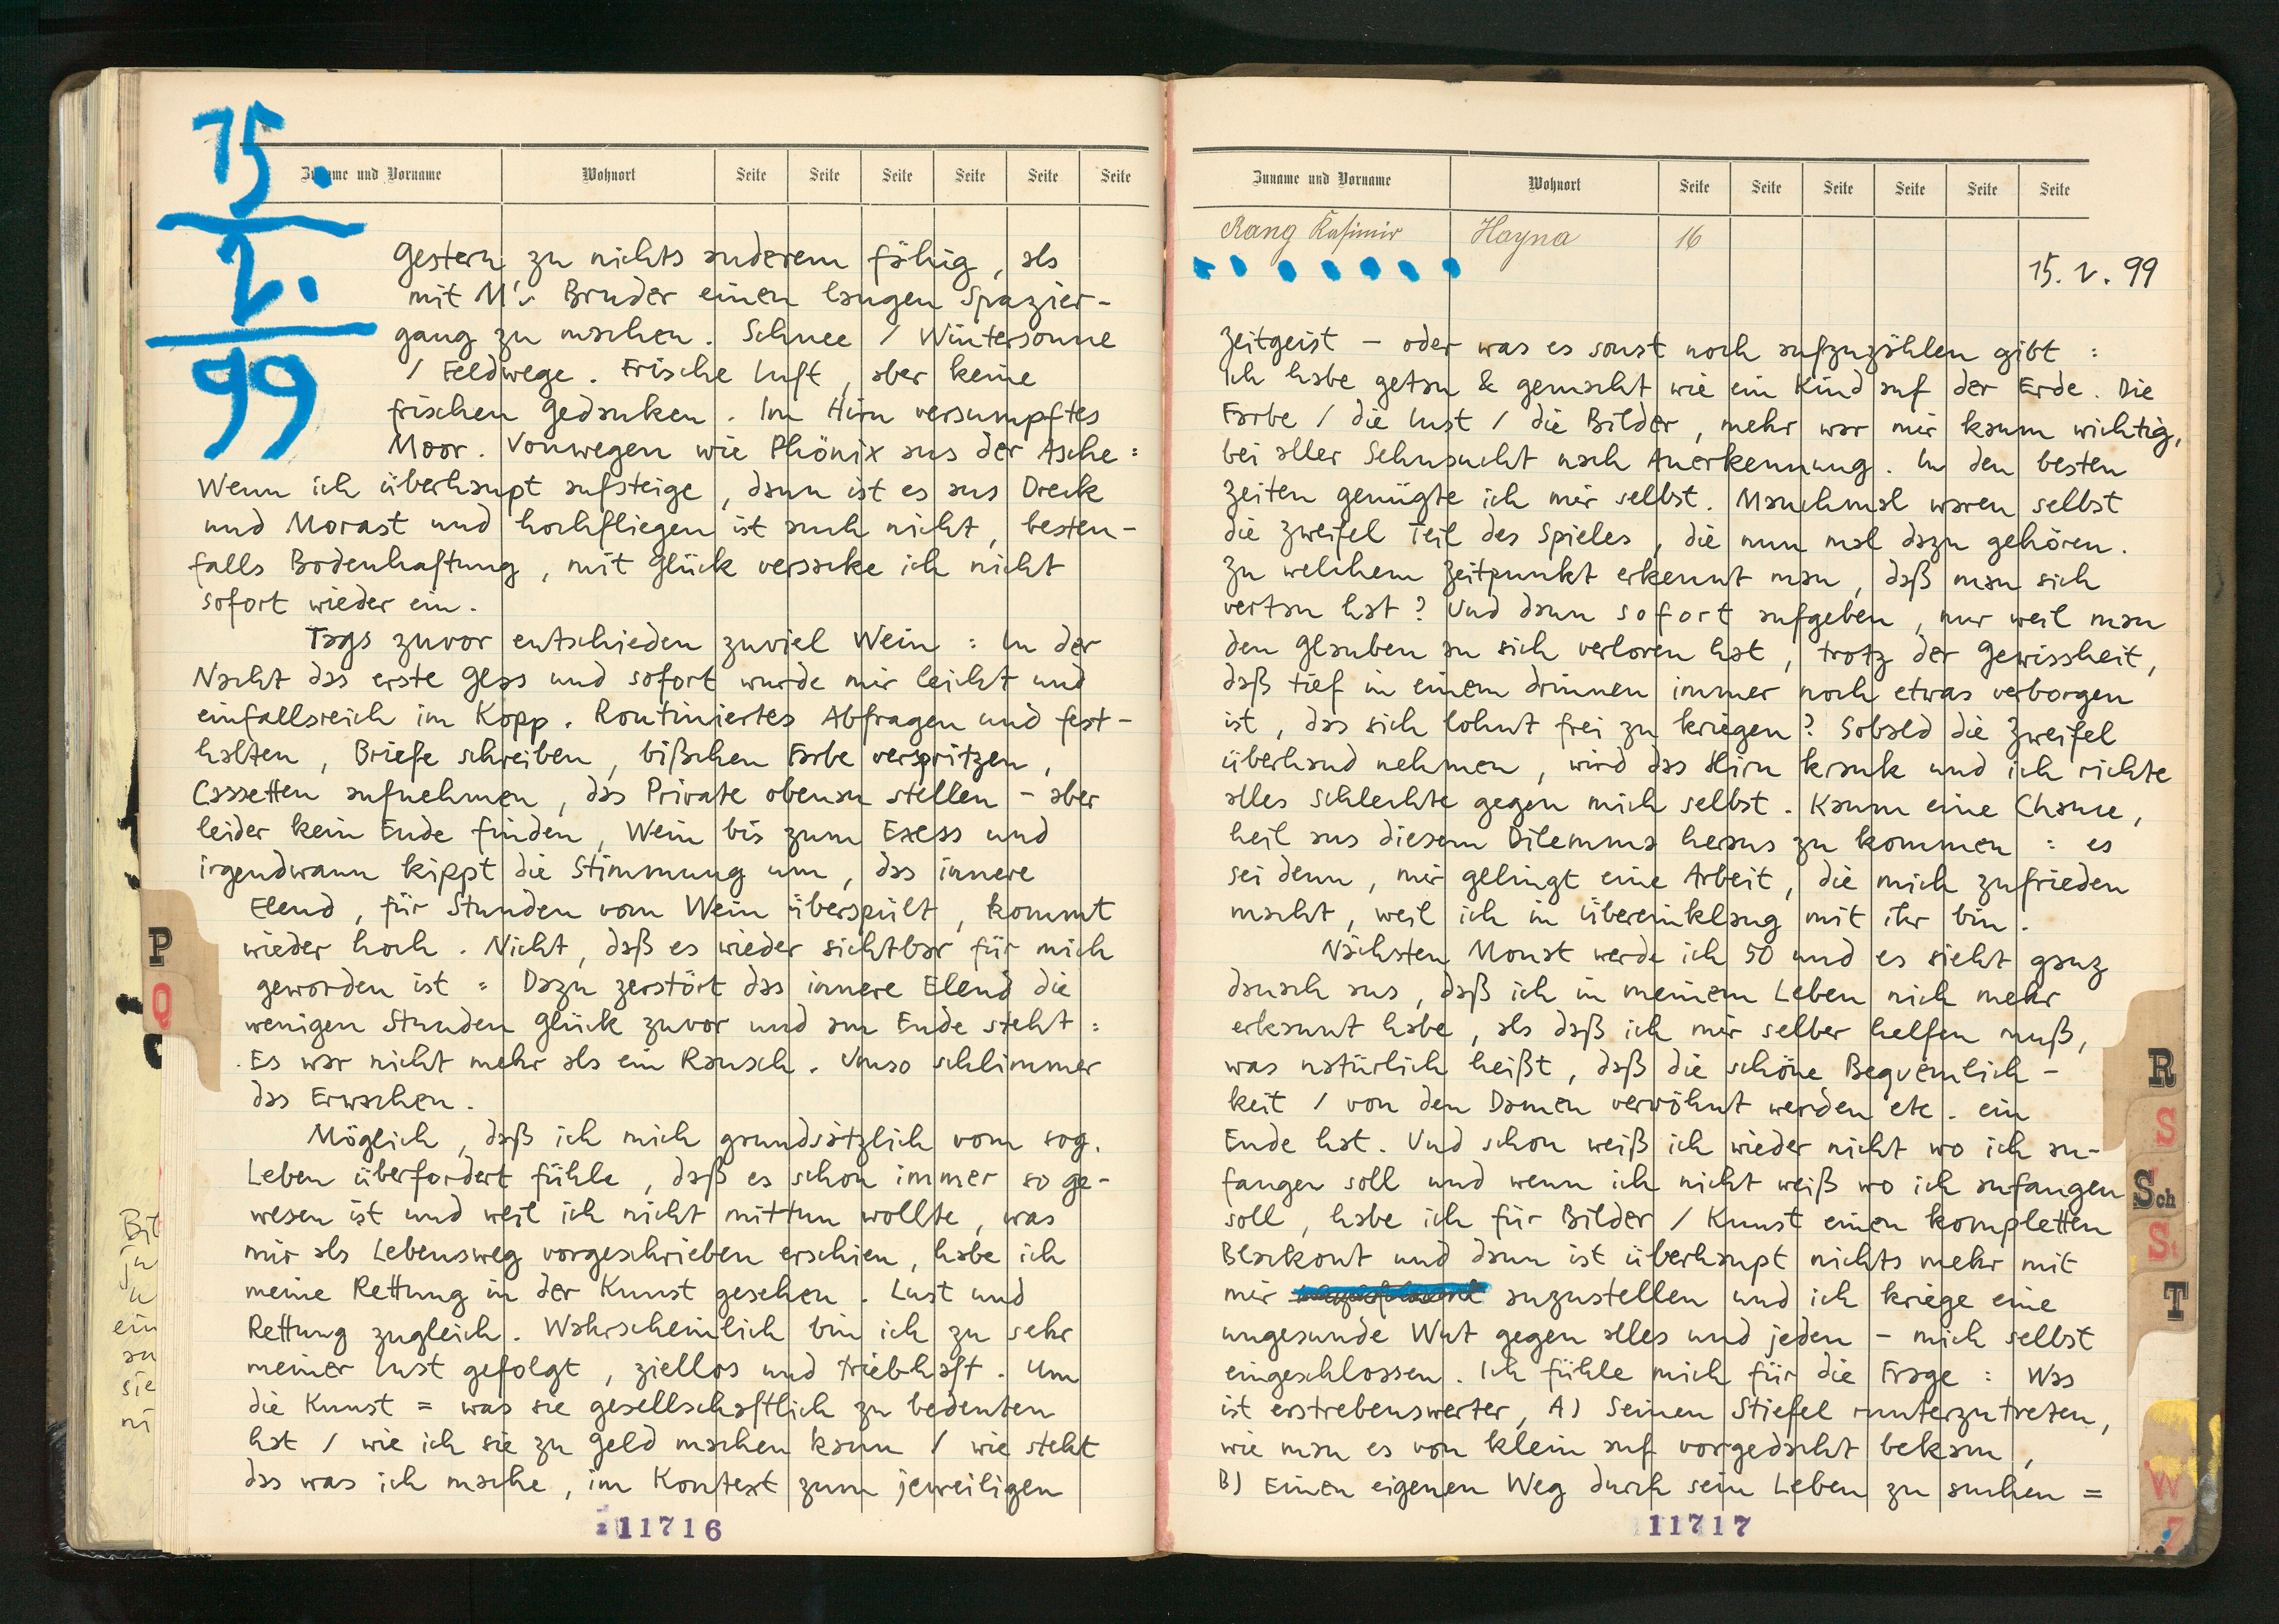 15.
2.
99
Zuname und Vorname Wohnort Seite Seite Seite Seite Seite Seite
Gestern zu nichts anderem fähig, als
mit M's Bruder einen langen Spazier-
gang zu machen. Schnee / Wintersonne
/ Feldwege. Frische Luft, aber keine
frischen Gedanken. Im Hirn versumpftes
Moor. Vonwegen wie Phönix aus der Asche:
Wenn ich überhaupt aufsteige, dann ist es aus Dreck
und Morast und hochfliegen ist auch nicht, besten-
falls Bodenhaftung, mit Glück versacke ich nicht
sofort wieder ein.
Tags zuvor entschieden zuviel Wein: In der
Nacht das erste Glas und sofort wurde mir leicht und
einfallsreich im Kopp. Routiniertes Abfragen und fest-
halten, Briefe schreiben, bißchen Farbe verspritzen,
Cassetten aufnehmen, das Private obenan stellen - aber
leider kein Ende finden, Wein bis zum Exess und
irgendwann kippt die Stimmung um, das innere
Elend, für Stunden vom Wein überspült, kommt
wieder hoch. Nicht, daß es wieder sichtbar für mich
geworden ist: Dazu zerstört das innere Elend die
wenigen Stunden Glück zuvor und am Ende steht:
Es war nicht mehr als ein Rausch. Umso schlimmer
das Erwachen.
Möglich, daß ich mich grundsätzlich vom sog.
Leben überfordert fühle, daß es schon immer so ge-
wesen ist und weil ich nicht mittun wollte, was
mir als Lebensweg vorgeschrieben erschien, habe ich
meine Rettung in der Kunst gesehen. Lust und
Rettung zugleich. Wahrscheinlich bin ich zu sehr
meiner Lust gefolgt, ziellos und triebhaft. Um
die Kunst = was sie gesellschaftlich zu bedeuten
hat / wie ich sie zu Geld machen kann / wie steht
das was ich mache, im Kontext zum jeweiligen
11716
P
Q
Bit
ja
ein
an
sie
ni
Zuname und Vorname Wohnort Seite Seite Seite Seite Seite Seite
Rang Kasimir Hayna 16
15.2.99
Zeitgeist - oder was es sonst noch aufzuzählen gibt:
Ich habe getan & gemacht wie ein Kind auf der Erde. Die
Farbe / die Lust / die Bilder, mehr war mir kaum wichtig,
bei aller Sehnsucht nach Anerkennung. In den besten
Zeiten genügte ich mir selbst. Manchmal waren selbst
die Zweifel Teil des Spieles, die nun mal dazu gehören.
Zu welchem Zeitpunkt erkennt man, daß man sich
vertan hat? Und dann sofort aufgeben, nur weil man
den Glauben an sich verloren hat, trotz der Gewissheit,
daß tief in einem drinnen immer noch etwas verborgen
ist, das sich lohnt frei zu kriegen? Sobald die Zweifel
überhand nehmen, wird das Hirn krank und ich richte
alles Schlechte gegen mich selbst. Kaum eine Chance,
heil aus diesem Dilemma heraus zu kommen: es
sei denn, mir gelingt eine Arbeit, die mich zufrieden
macht, weil ich in Übereinklang mit ihr bin.
Nächsten Monat werde ich 50 und es sieht ganz
danach aus, daß ich in meinem Leben nich mehr
erkannt habe, als daß ich mir selber helfen muß,
was natürlich heißt, daß die schöne Bequemlich-
keit / von den Damen verwöhnt werden etc. ein
Ende hat. Und schon weiß ich wieder nicht wo ich an-
fangen soll und wenn ich nicht weiß wo ich anfangen
soll, habe ich für Bilder / Kunst einen kompletten
Blackout und dann ist überhaupt nichts mehr mit
mir anzustellen und ich kriege eine
ungesunde Wut gegen alles und jeden - mich selbst
eingeschlossen. Ich fühle mich für die Frage: Was
ist erstrebenswerter, A) Seinen Stiefel runterzutreten,
wie man es von klein auf vorgedacht bekam,
B) Einen eigenen Weg durch sein Leben zu suchen =
11717
R
S
Sch
St
T
W
Z